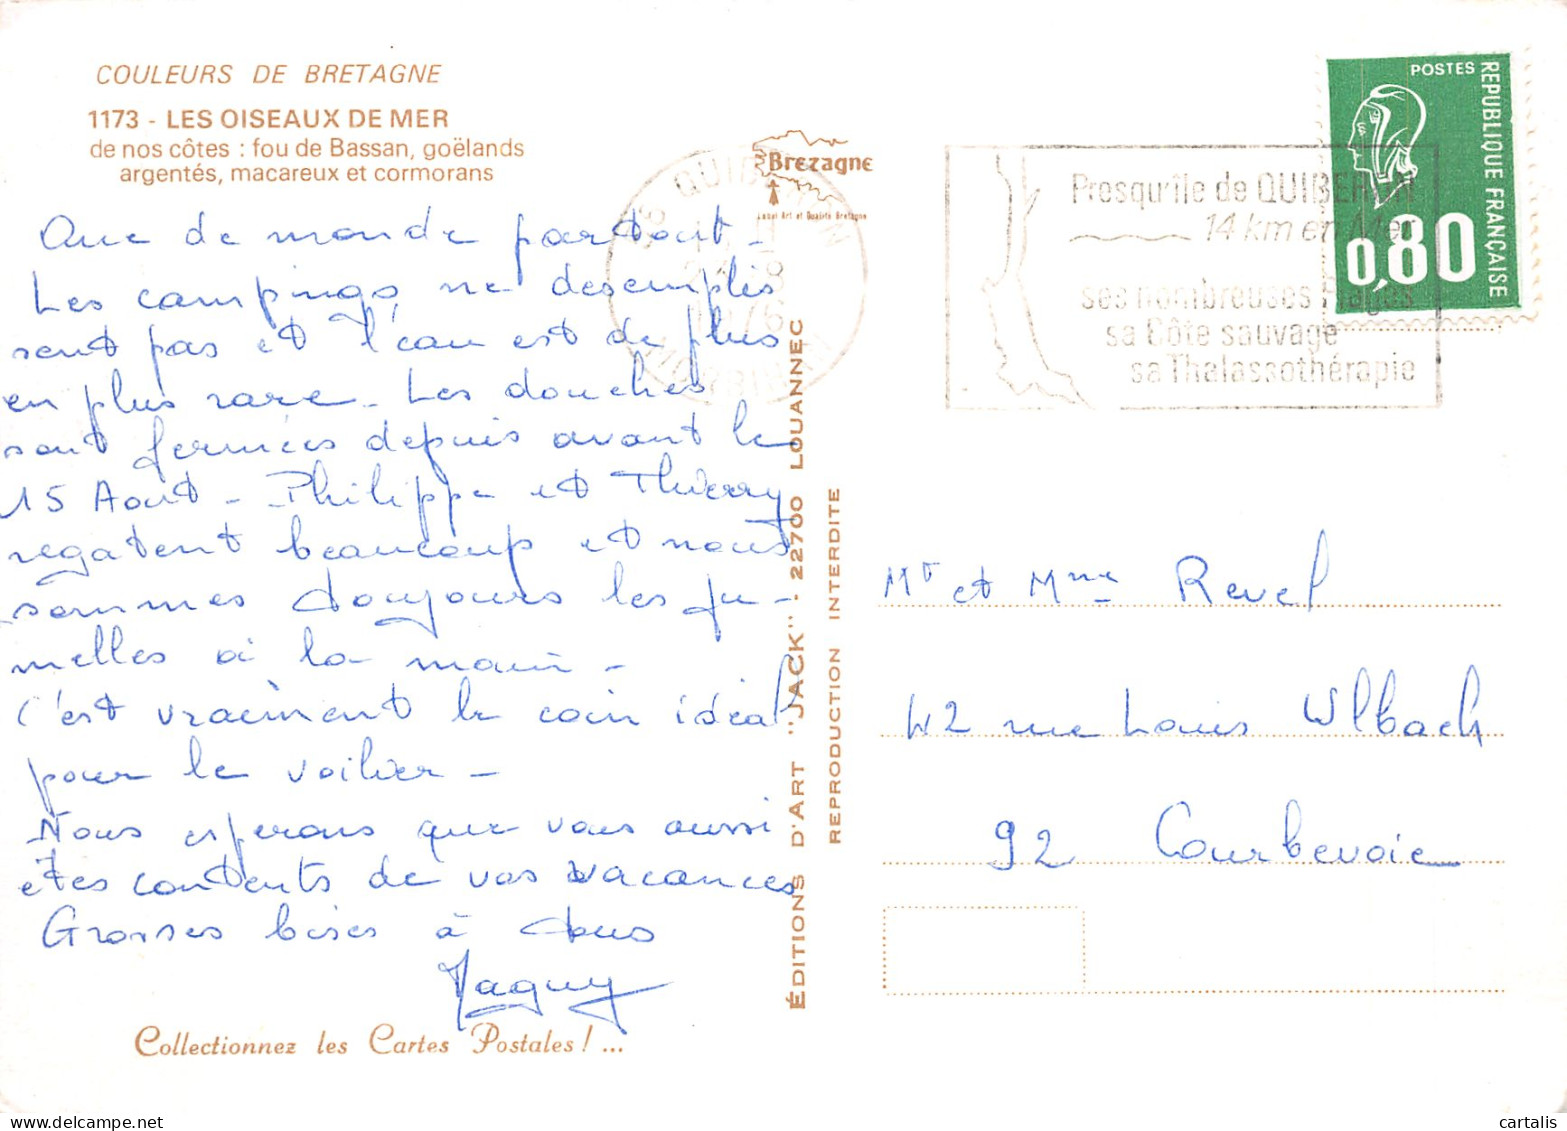 COULEURS DE BRETAGNE
1173 - LES OISEAUX DE MER
de nos côtes : fou de Bassan, goëlands
argentés, macareux et cormorans
Que de monde partout -
Les campings ne desemplis
sent pas et l'eau est de plus
en plus rare - Les douches
sont fermées depuis avant le
15 Aout - Philippe et Thierry
regatent beaucoup et nous
sommes toujours les ju-
melles à la main -
C'est vraiment le coin idéal
pour le voilier -
Nous esperons que vous aussi
etes contents de vos vacances
Grosses bises à tous
Maguy
Collectionnez les Cartes Postales ! ...
ÉDITIONS D'ART "JACK" - 22700 LOUANNEC
REPRODUCTION INTERDITE
Brezagne
Label Art et Qualité Bretagne
56 QUIBERON
1976
MORBIHAN
Presqu'île de QUIBERON
14 km en Mer
ses nombreuses Plages
sa Côte sauvage
sa Thalassothérapie
POSTES
REPUBLIQUE FRANÇAISE
0,80
Mr et Mme Revel
42 rue Louis Ulbach
92 Courbevoie
cartalis